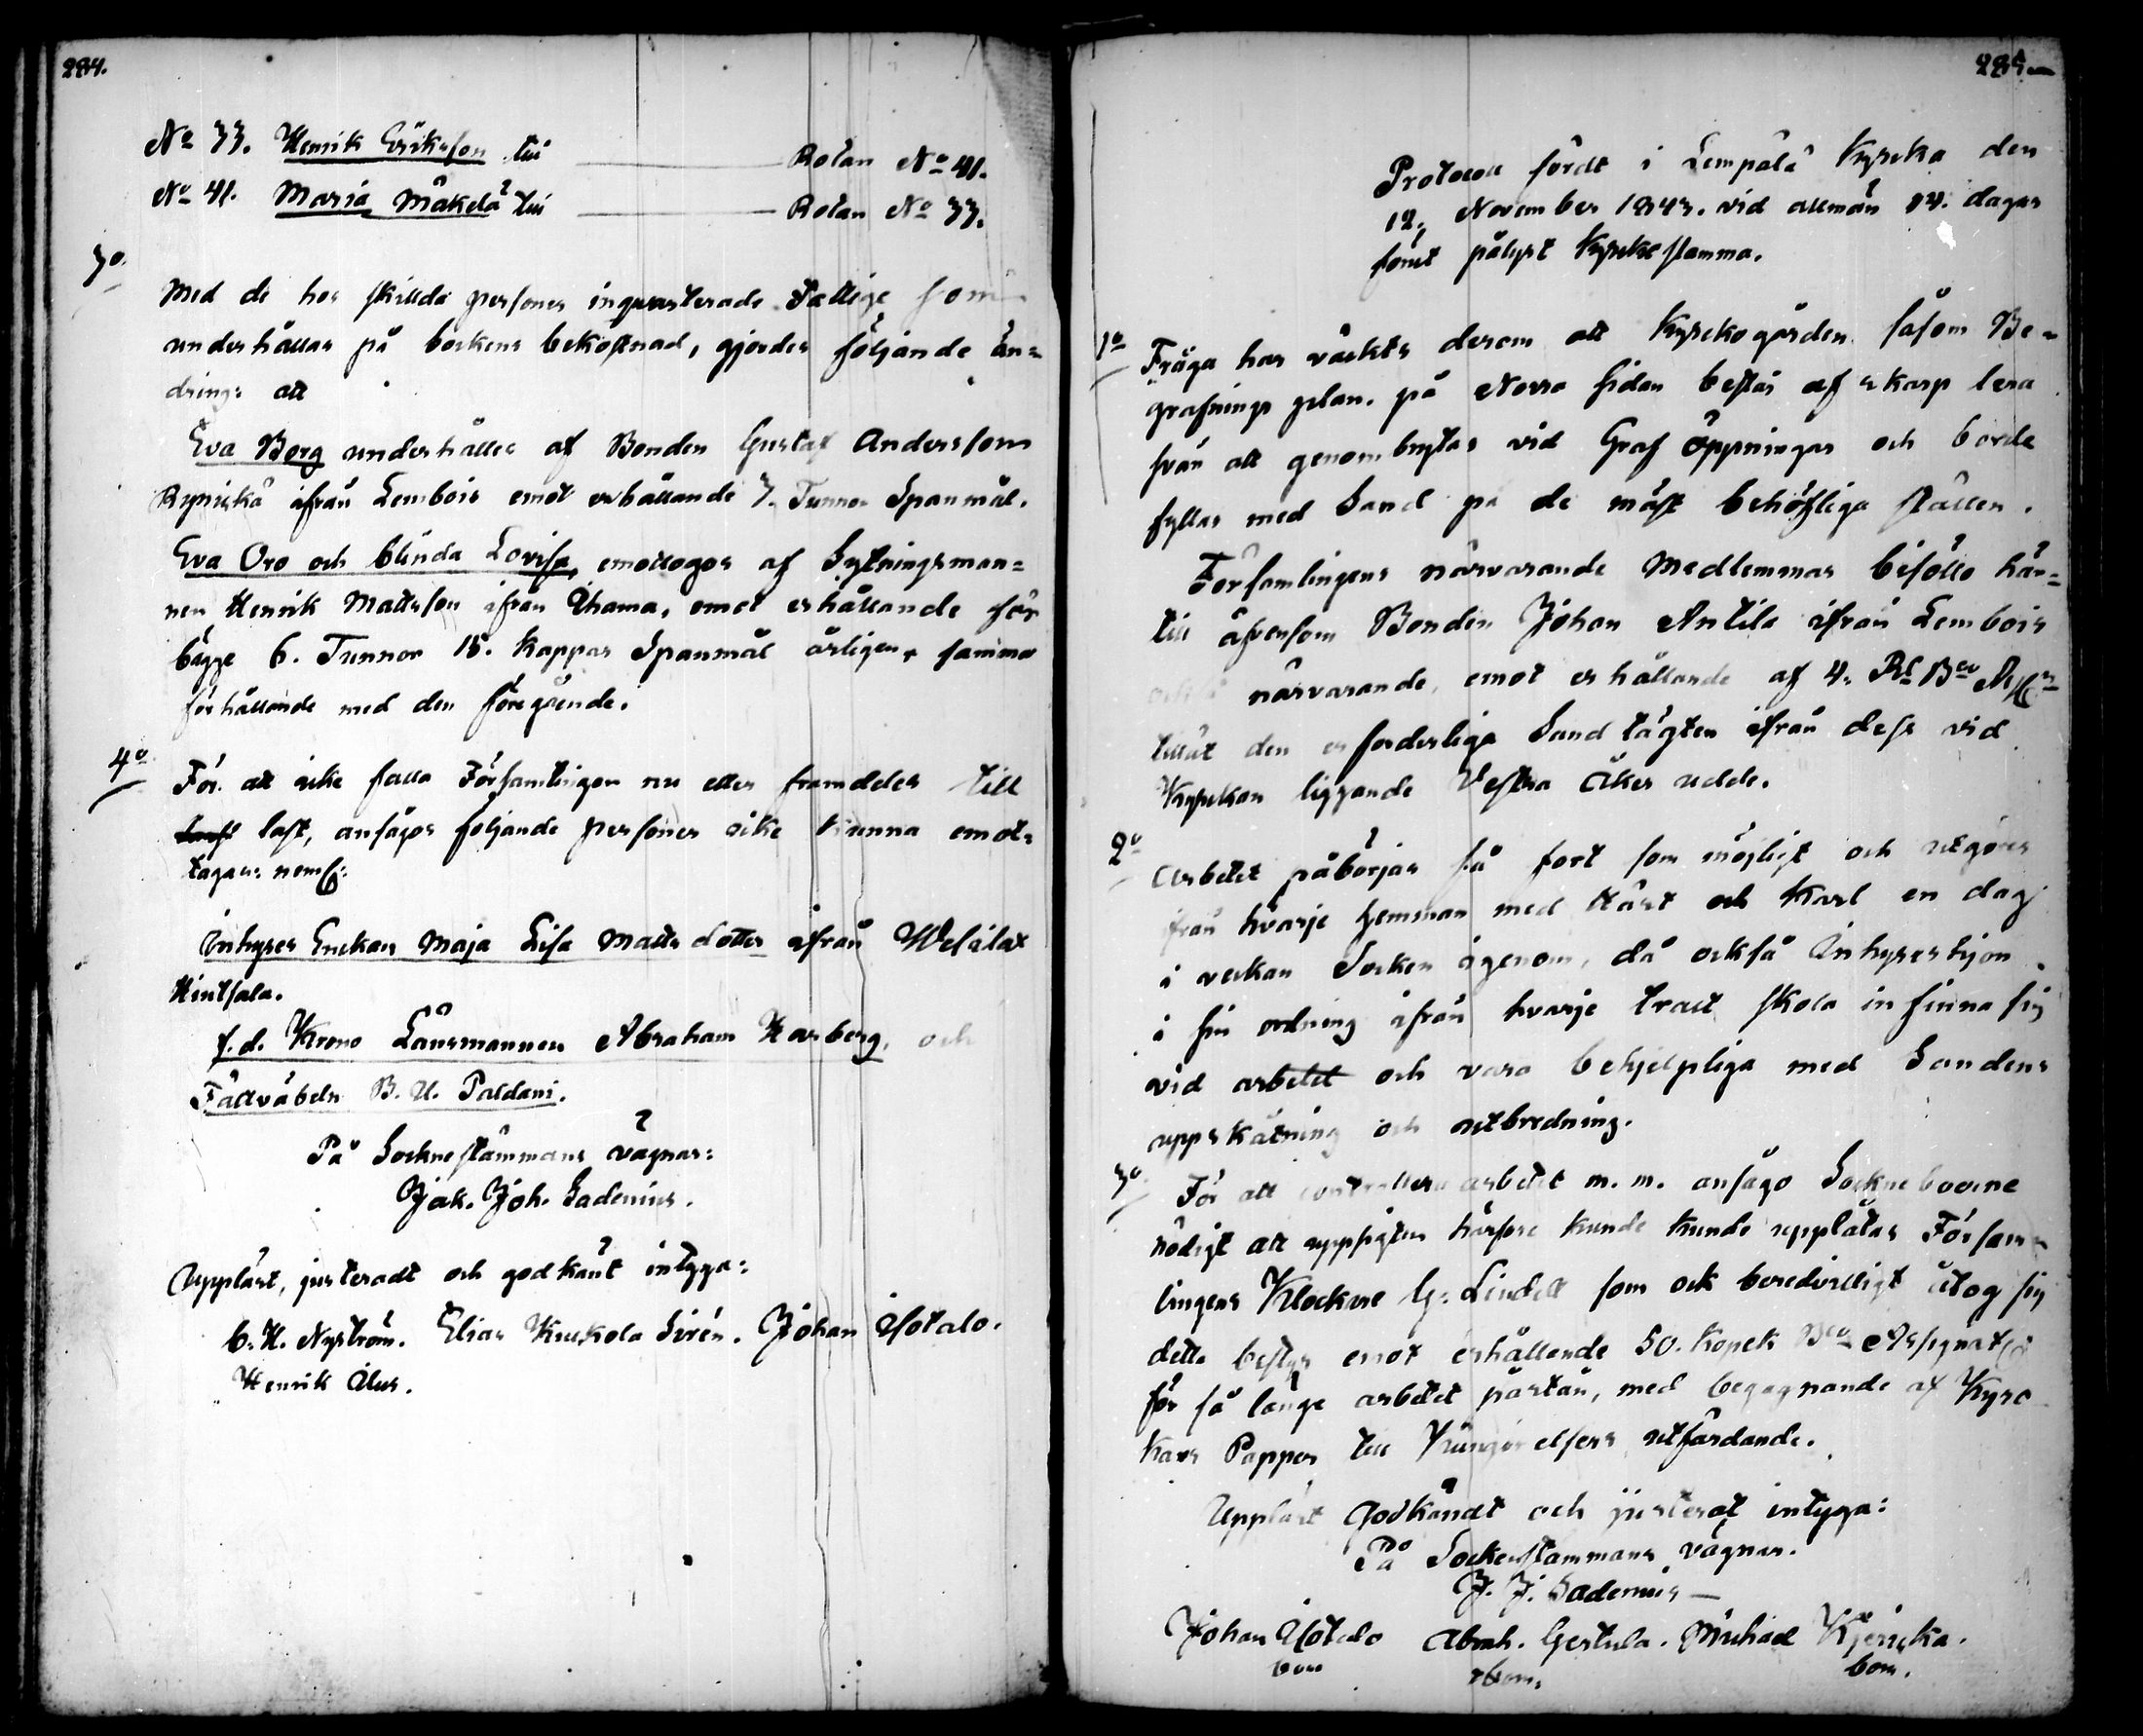 284.
No 33. Henrik Eriksson till Rotan No 41.
No 41. Maria Mäkelä till Rotan No 33.
3o
Med de hos skillda personer inqvarterade Fattige som
underhållas på sockens bekostnad, gjordes följande än=
dring: att
Eva Borg underhålles af Bonden Gustaf Andersson
ifrån Lembois emot erhållande 3. Tunnor Spanmål.
Eva Oro och blinda Lovisa, emottogos af Sytningsman=
nen Henrik Mattsson ifrån Ahama, emot erhållande för
bägge 6. Tunnor 15. Kappar Spanmål årligen, samma
förhållande med den föregående.
4o
För att icke falla Församlingen nu eller framdeles till
last, ansågos följande personer icke kunna emot=
tagas: neml:
Inhyses Enckan Maja Lisa Matts dotter ifrån
Hintsala.
f.d. Krono Länsmannen Abraham Harberg, och
Fältväbeln B. U. Paldani.
På Sockne stämmans vägnar:
Jak. Joh. Sadenius.
Uppläst, justeradt och godkänt intyga:
C. H. Nyström. Elias Kuckola Sirén. Johan Isotalo.
Henrik Alus.
285
Protocoll fördt i Lempälä Kyrcka den
12. November 1843. vid allmän 14. dagar
förut pålyst Kyrckostämma.
1o
Fråga har väckts derom att Kyrckogården såsom Be=
grafnings plan. på Norra sidan består af skarp lera
från att genombrytas vid Graf öppningar och borde
fyllas med Sand på de mäst behöfliga ställen.
Församlingens närvarande Medlemmar biföllo här=
till äfvensom Bonden Johan Antila ifrån Lembois
också närvarande, emot erhållande af 4. Rl Bco
tillät den erforderliga Sand tägten ifrån dess vid
Kyrckan liggande Vestra Åker udde.
2o
Arbetet påbörjas så fort som möjligt och utgöres
från hvarje Hemman med Häst och Karl en dag
i veckan Socken igenom, då också Inhyseshjon
i sin ordning ifrån hvarje tract skola infinna sig
vid arbetet och vara behjelpliga med Sandens
uppskätning och utbredning.
3o
För att controllera arbetet m. m. ansågo Socknebooerne
nödigt att uppsigten härföre kunde kunde upplåtas Försam=
lingens Klockare G: Lindell som ock beredvilligt åtog sig
detta bestyr emot erhållande 50. Kopek Bco Assignat
för så länge arbetet påstån, med begagnande af Kyrc
kans Papper till Kungörelsers utfärdande.
Uppläst Godkändt och justerat intyga:
På Sockenstämmans vägnar.
J. J. Sadenius
Johan Isotalo Abrah. Gertula. Michael
bom. bom. bom.